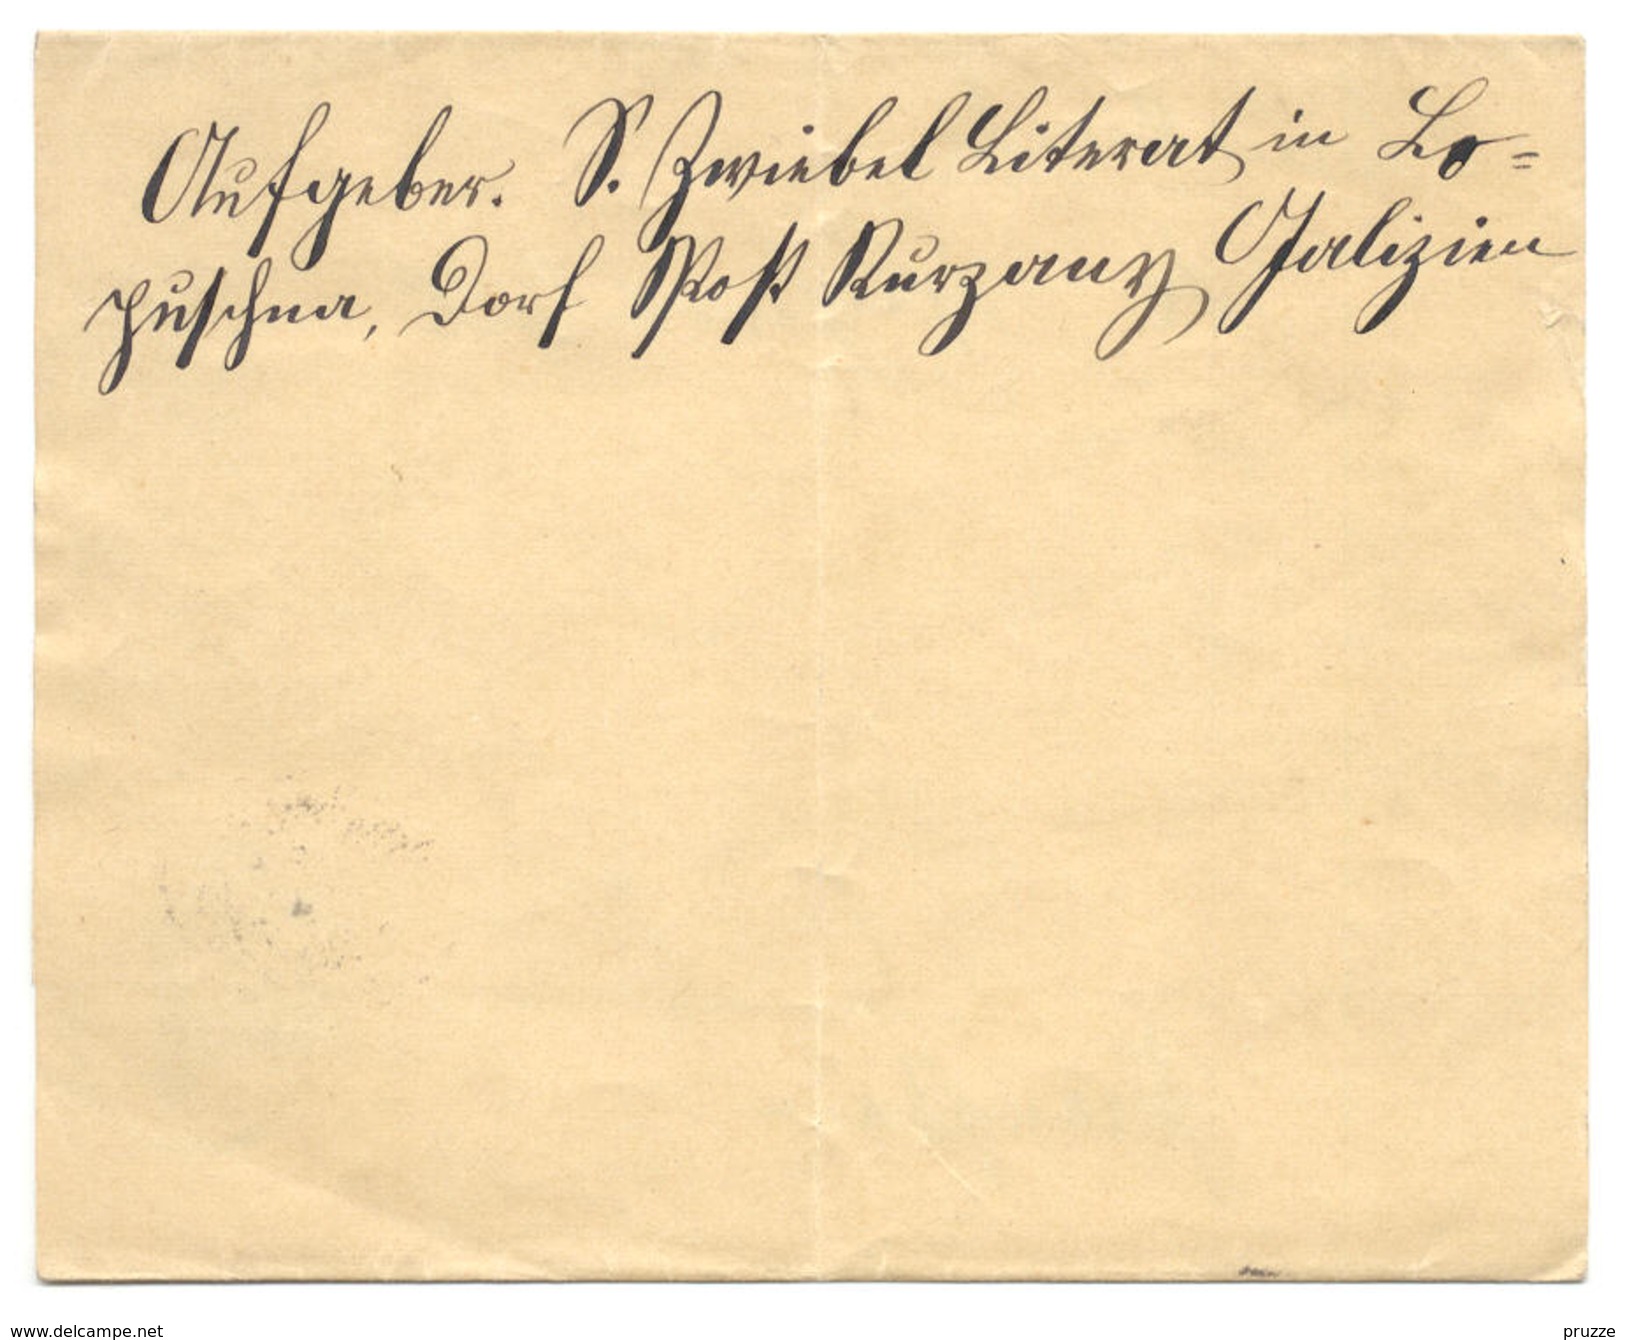 Aufgeber. S. Zwiebel Literat in Lo=
puschna, Dorf Post Kurzany Galizien
www.delcampe.net
pruzze